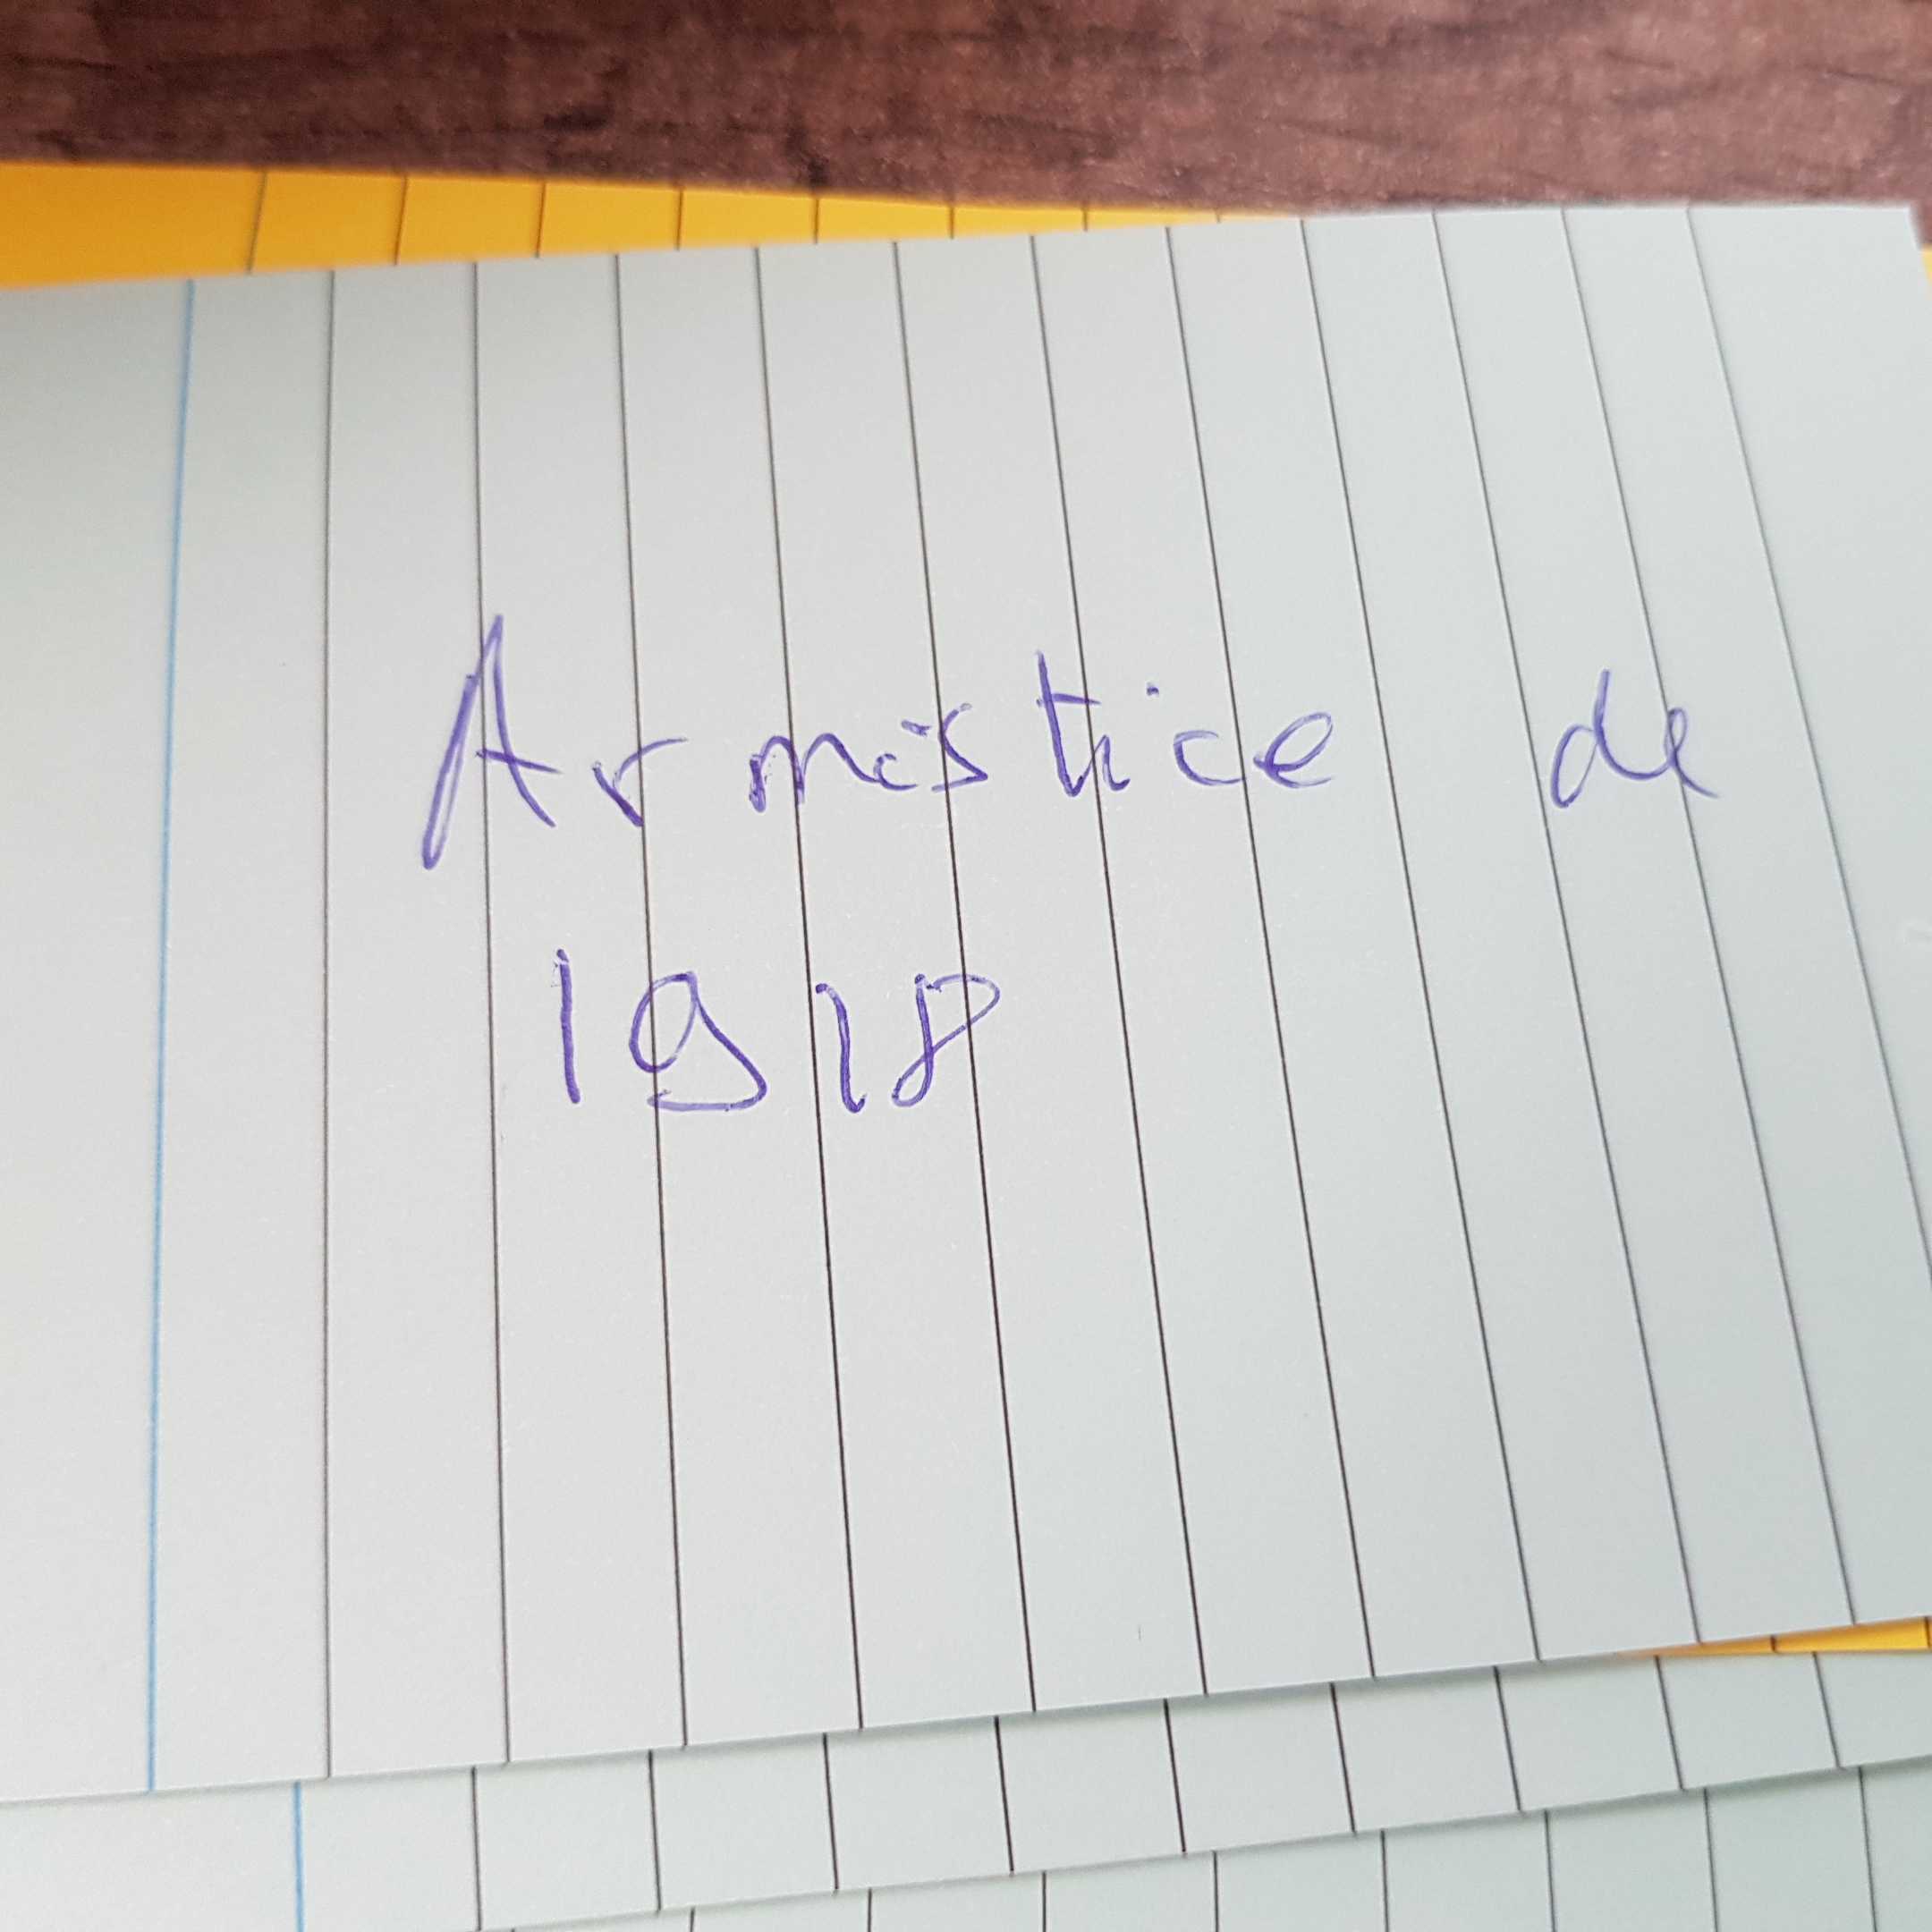 Armistice de
1918